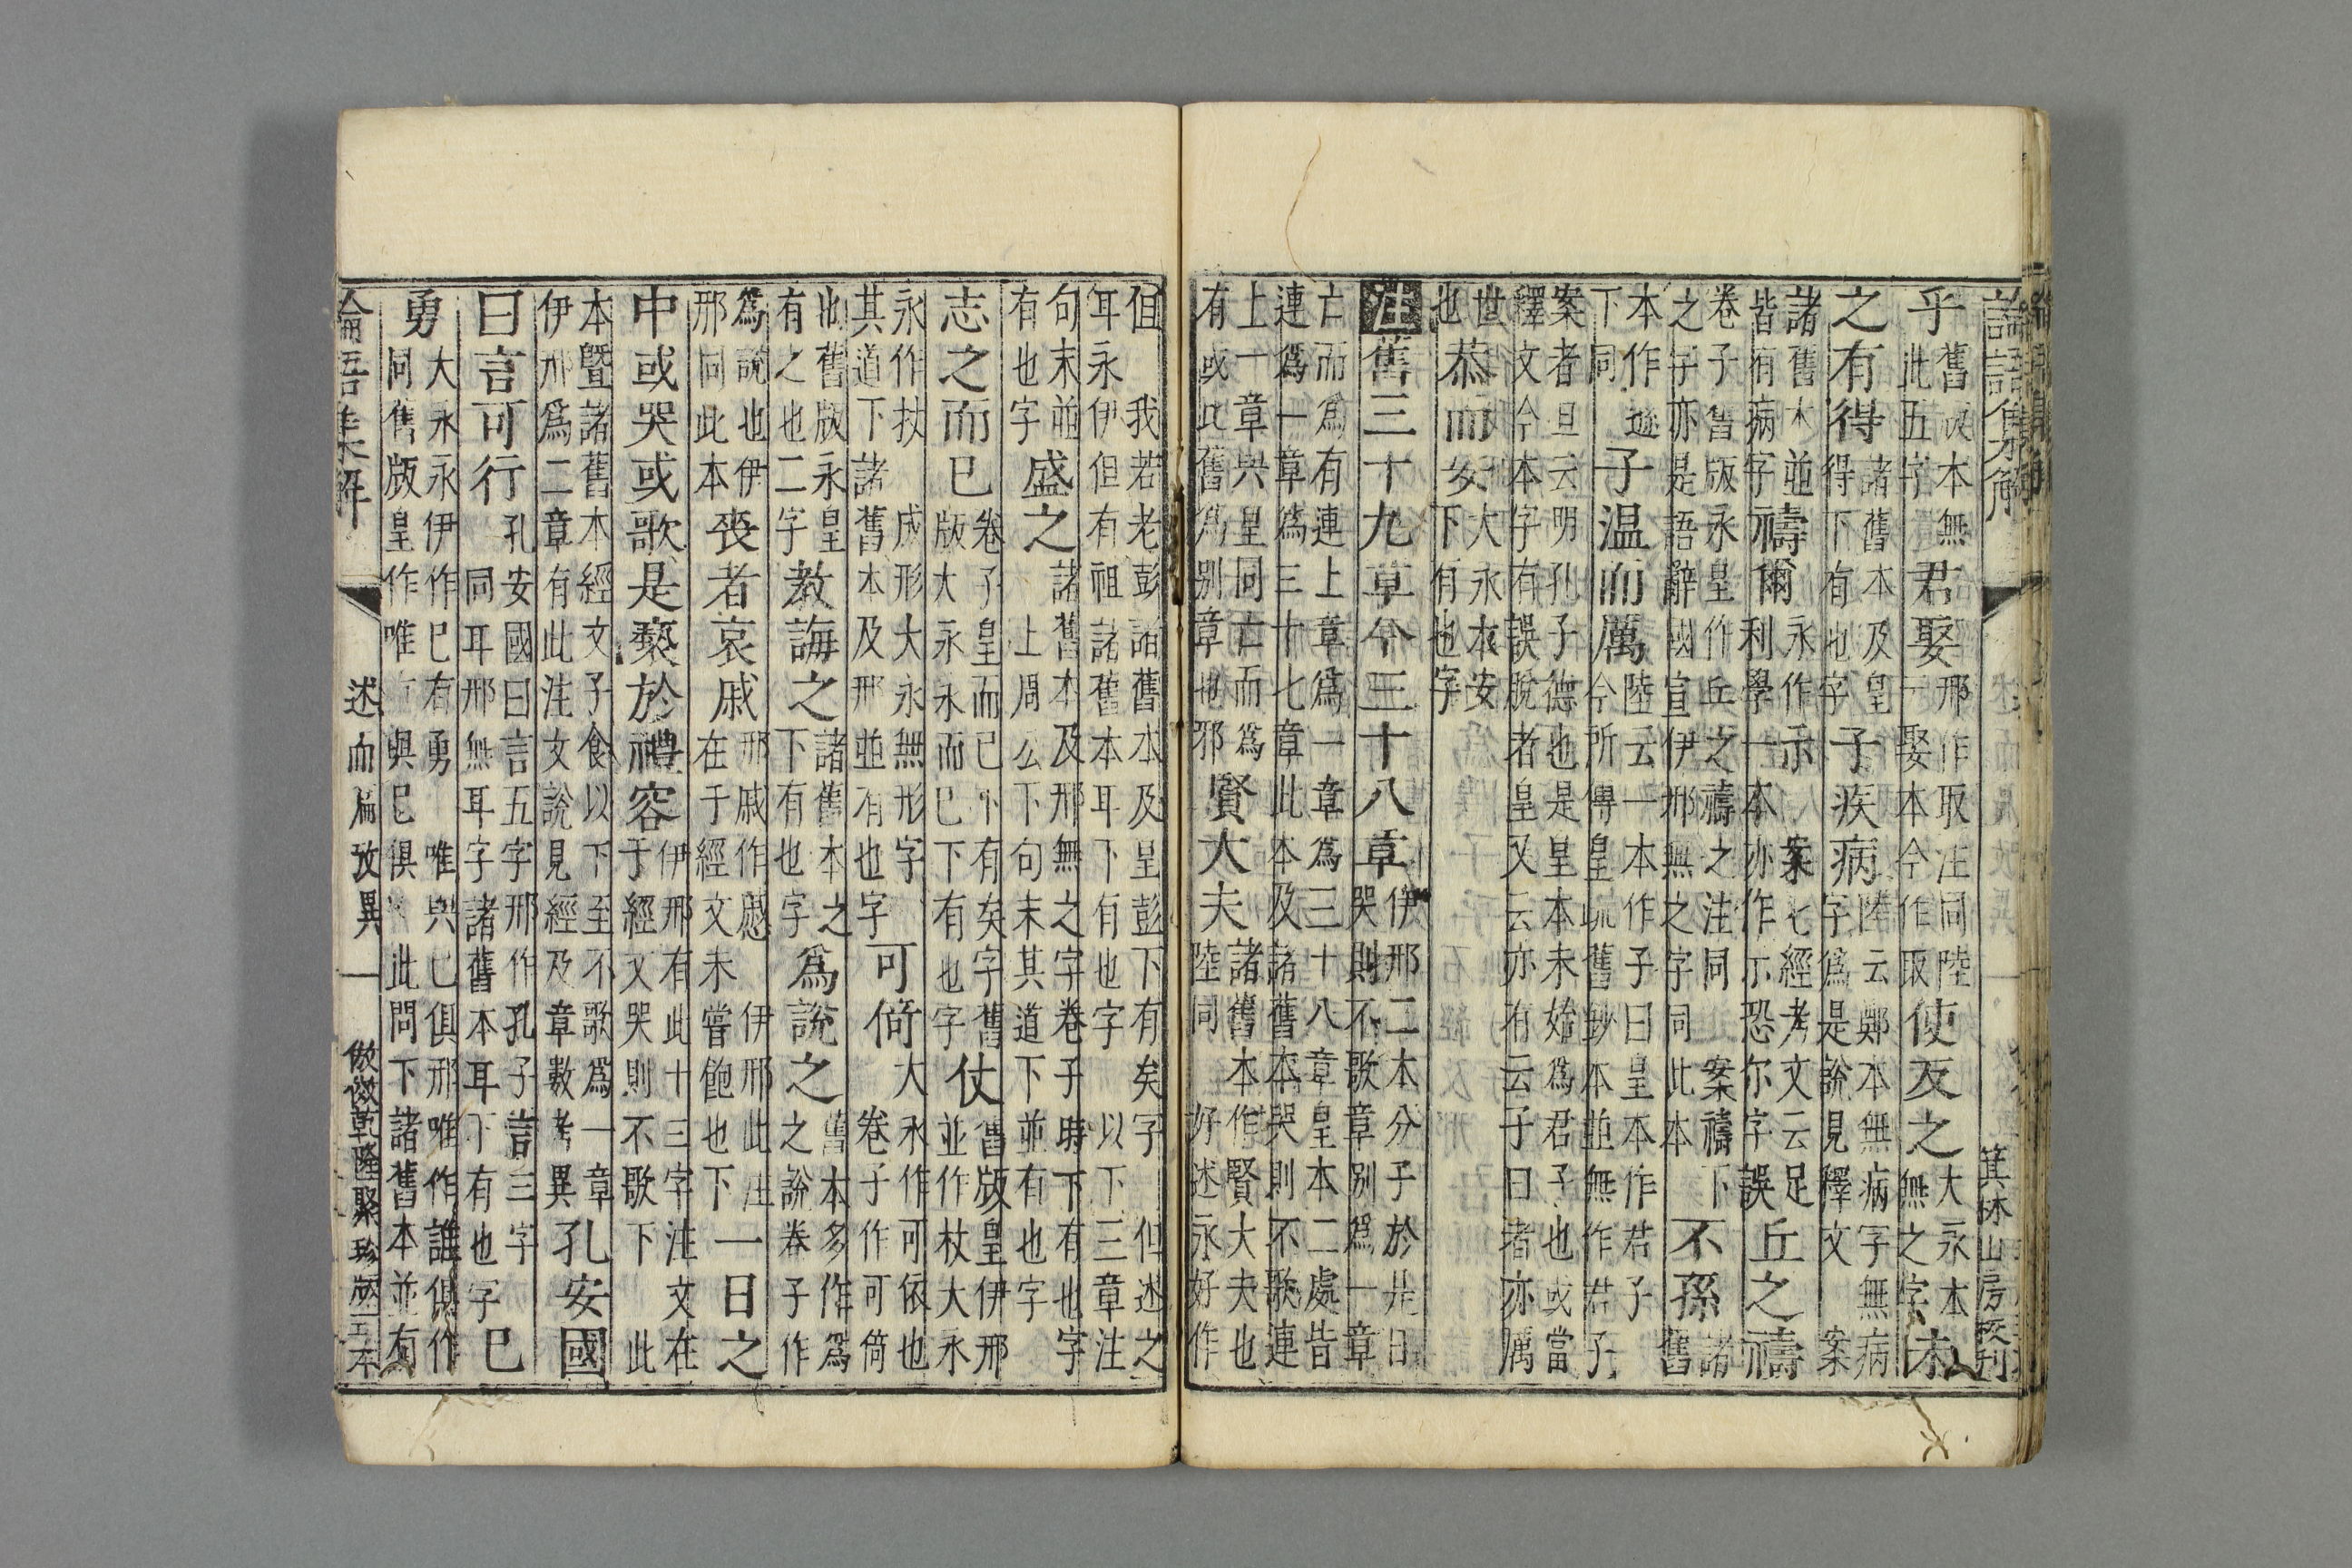 論語集解
箕林山房授刊
乎 舊版本無此五字 君娶 邢作取注同陸云娶本今作取 使反之 大永本無之字 末
之有得 諸舊本及皇得下有也字 子疾病 陸云鄭本無病字無病字爲是說見釋文 案
諸舊本並皆有病字 禱爾 永作示利學一本亦作尒恐尓字誤 案七經考文云足 丘之禱
卷子舊版永皇作丘之禱之注同之字亦是語辭國宣伊邢無之字同此本 案禱下 不孫 諸舊
本作遜下同 子温而厲 陸云一本作子曰皇本作君子今所傳皇疏舊鈔本並無作君子
案者且云明孔子德也是皇本未始爲君子也或當釋文今本字有誤脫者皇又云亦有云子曰者亦厲
世也 恭而安 大永本安下有也字
注舊三十九章今三十八章 伊邢二本分子於是日哭則不歌章別爲一章
亡而爲有連上章爲一章爲三十八章皇本二處皆連爲一章爲三十七章此本及諸舊本哭則不歌連
上一章與皇同亡而爲有或此舊爲別章也邪 賢大夫 諸舊本作賢大夫也陸同 好述永好作
但 我若老彭諸舊本及皇彭下有矣字 但述之耳永伊但有祖諸舊本耳下有也字 以下三章注
句末並有也字 盛之 諸舊本及邢無之字卷子時下有也字 上周公下句末其道下並有也字
志之而已 卷子皇而已下有矣字舊版大永永而已下有也字 仗 舊版皇伊邢並作杖大永
永作扙其道下諸舊本及邢並有也字 成形大永無形字 可倚 大永作可依也卷子作可筒
也舊版永皇有之也二字 教誨之 諸舊本之下有也字 爲說之 舊本多作爲之說卷子作
爲說也伊邢同此本 喪者哀戚 邢戚作慼在于經文未嘗飽也下 伊邢此注 一日之
中或哭或歌是褻於禮容 伊邢有此十三字注文在于經文哭則不歌下 此
本暨諸舊本經文子食以下至不歌爲一章伊邢爲二章有此注文說見經及章數考異 孔安國
曰言可行 孔安國曰言五字邢作孔子言三字同耳邢無耳字諸舊本耳下有也字 已
勇 大永永伊作已有勇同舊版皇作唯 唯與已俱邢唯作誰俱作 此問下諸舊本並有
論語集解 述而篇攷異 一 倣乾隆聚珍版